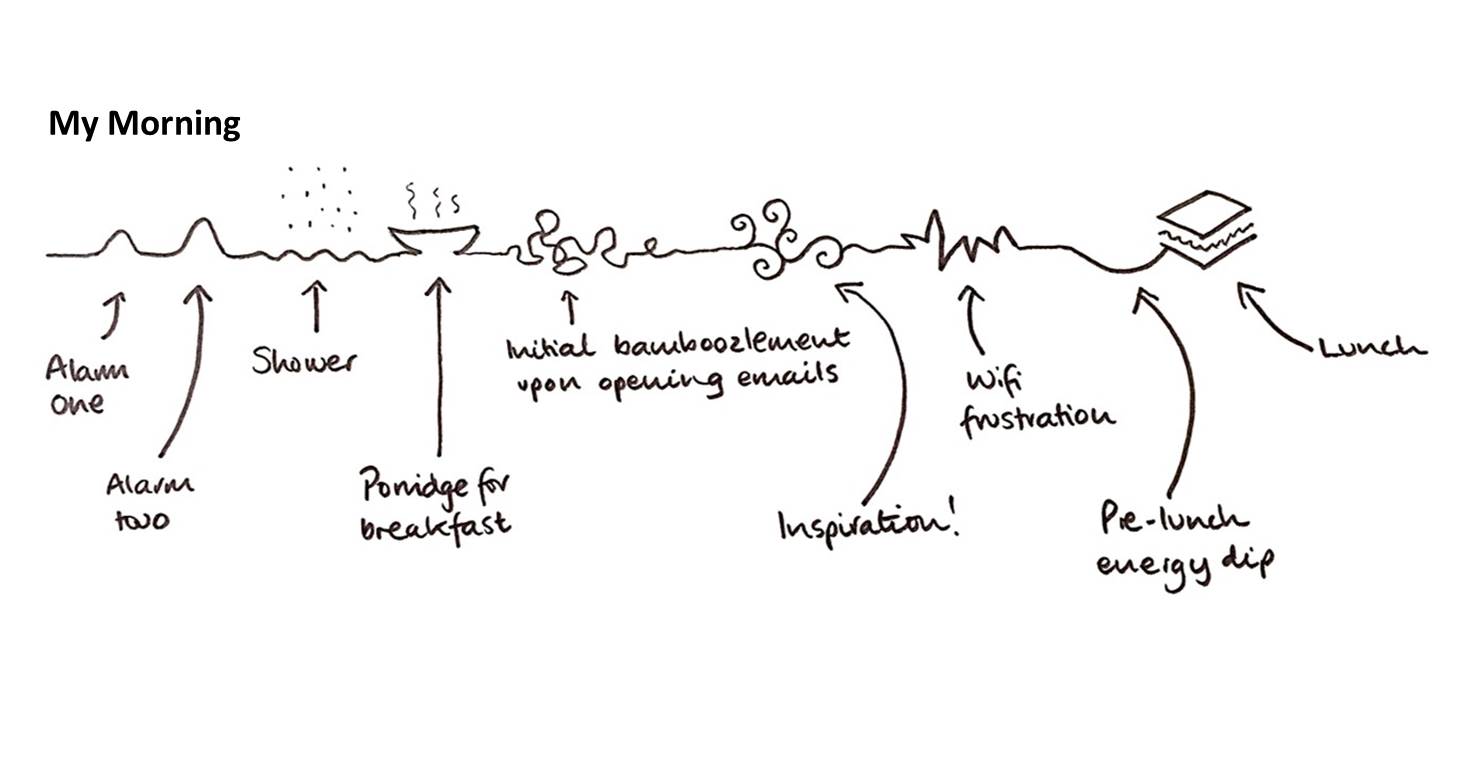 My Morning
Alarm
one
Alarm
two
Shower
Porridge for
breakfast
Initial bamboozlement
upon opening emails
Inspiration!
Wifi
frustration
Pre-lunch
energy dip
Lunch